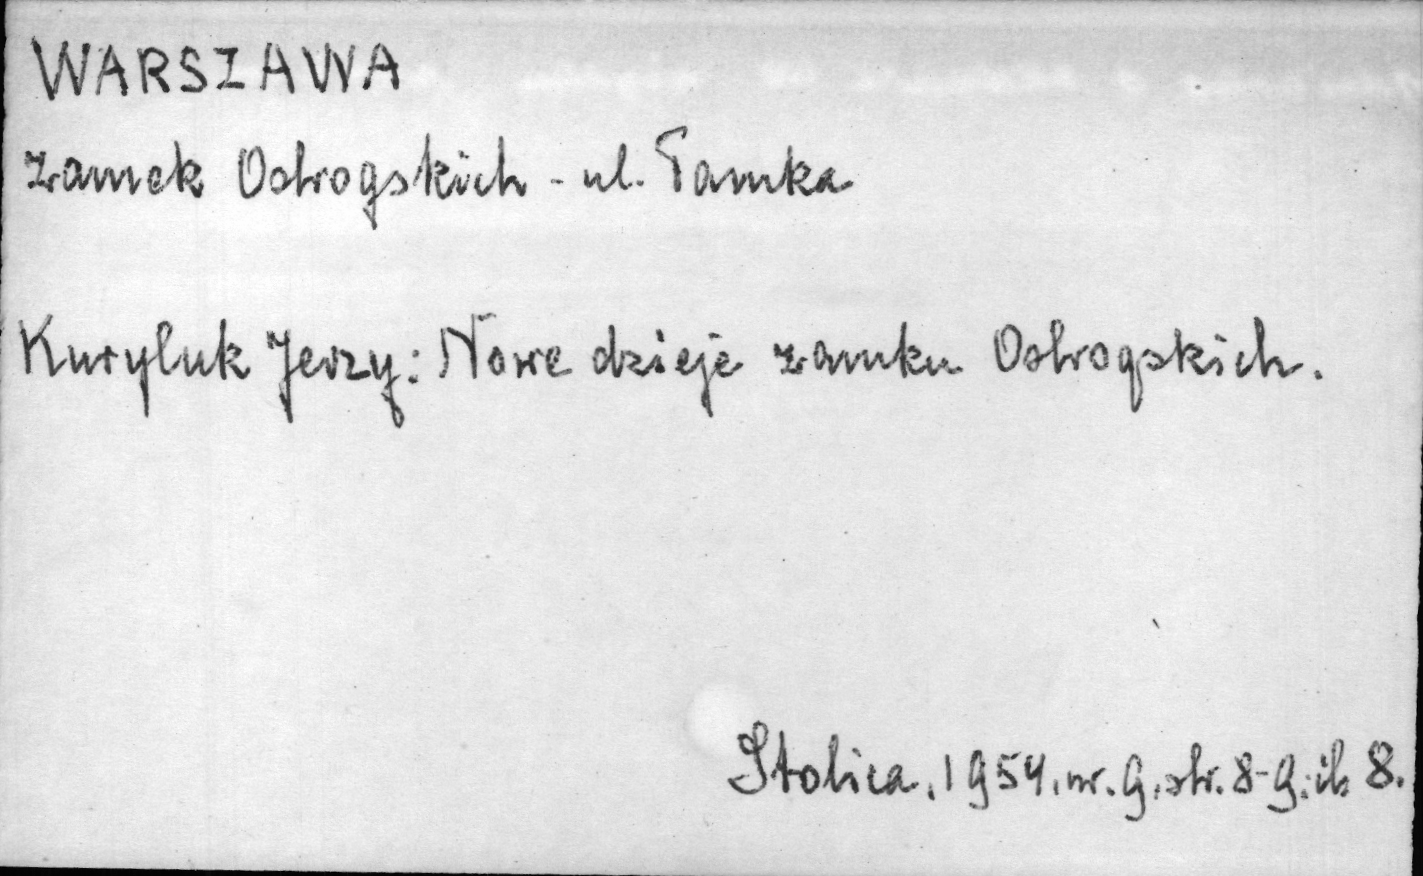 WARSZAWA
zamek Ostrogskich - ul. Tamka
Kuryluk Jerzy: Nowe dzieje zamku Ostrogskich.
Stolica, 1954, nr. 9, str. 8-9; il. 8.